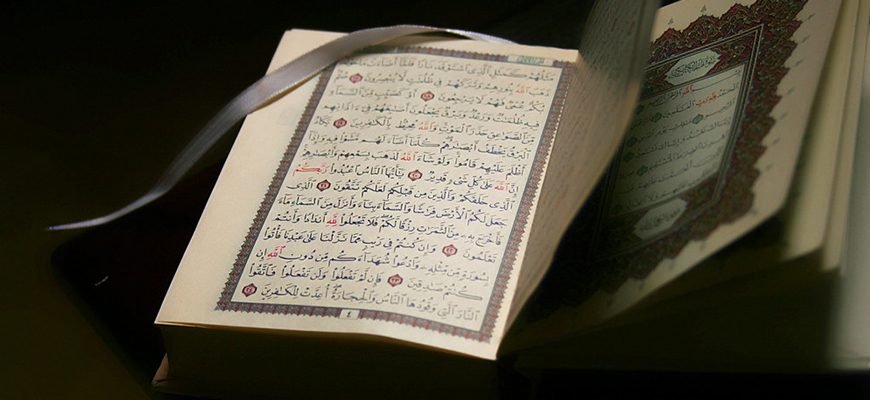 مَثَلُهُمْ كَمَثَلِ ٱلَّذِى ٱسْتَوْقَدَ نَارًا فَلَمَّآ أَضَآءَتْ مَا حَوْلَهُۥ
ذَهَبَ ٱللَّهُ بِنُورِهِمْ وَتَرَكَهُمْ فِى ظُلُمَٰتٍ لَّا يُبْصِرُونَ ١٧
صُمٌّۢ بُكْمٌ عُمْىٌ فَهُمْ لَا يَرْجِعُونَ ١٨ أَوْ كَصَيِّبٍ مِّنَ ٱلسَّمَآءِ
فِيهِ ظُلُمَٰتٌ وَرَعْدٌ وَبَرْقٌ يَجْعَلُونَ أَصَٰبِعَهُمْ فِىٓ ءَاذَانِهِم
مِّنَ ٱلصَّوَٰعِقِ حَذَرَ ٱلْمَوْتِ وَٱللَّهُ مُحِيطٌۢ بِٱلْكَٰفِرِينَ ١٩ يَكَادُ
ٱلْبَرْقُ يَخْطَفُ أَبْصَٰرَهُمْ كُلَّمَآ أَضَآءَ لَهُم مَّشَوْا۟ فِيهِ وَإِذَآ
أَظْلَمَ عَلَيْهِمْ قَامُوا۟ وَلَوْ شَآءَ ٱللَّهُ لَذَهَبَ بِسَمْعِهِمْ وَأَبْصَٰرِهِمْ
إِنَّ ٱللَّهَ عَلَىٰ كُلِّ شَىْءٍ قَدِيرٌ ٢٠ يَٰٓأَيُّهَا ٱلنَّاسُ ٱعْبُدُوا۟ رَبَّكُمُ
ٱلَّذِى خَلَقَكُمْ وَٱلَّذِينَ مِن قَبْلِكُمْ لَعَلَّكُمْ تَتَّقُونَ ٢١ ٱلَّذِى
جَعَلَ لَكُمُ ٱلْأَرْضَ فِرَٰشًا وَٱلسَّمَآءَ بِنَآءً وَأَنزَلَ مِنَ ٱلسَّمَآءِ مَآءً
فَأَخْرَجَ بِهِۦ مِنَ ٱلثَّمَرَٰتِ رِزْقًا لَّكُمْ فَلَا تَجْعَلُوا۟ لِلَّهِ أَندَادًا وَأَنتُمْ
تَعْلَمُونَ ٢٢ وَإِن كُنتُمْ فِى رَيْبٍ مِّمَّا نَزَّلْنَا عَلَىٰ عَبْدِنَا فَأْتُوا۟
بِسُورَةٍ مِّن مِّثْلِهِۦ وَٱدْعُوا۟ شُهَدَآءَكُم مِّن دُونِ ٱللَّهِ إِن
كُنتُمْ صَٰدِقِينَ ٢٣ فَإِن لَّمْ تَفْعَلُوا۟ وَلَن تَفْعَلُوا۟ فَٱتَّقُوا۟
ٱلنَّارَ ٱلَّتِى وَقُودُهَا ٱلنَّاسُ وَٱلْحِجَارَةُ أُعِدَّتْ لِلْكَٰفِرِينَ ٢٤
٤